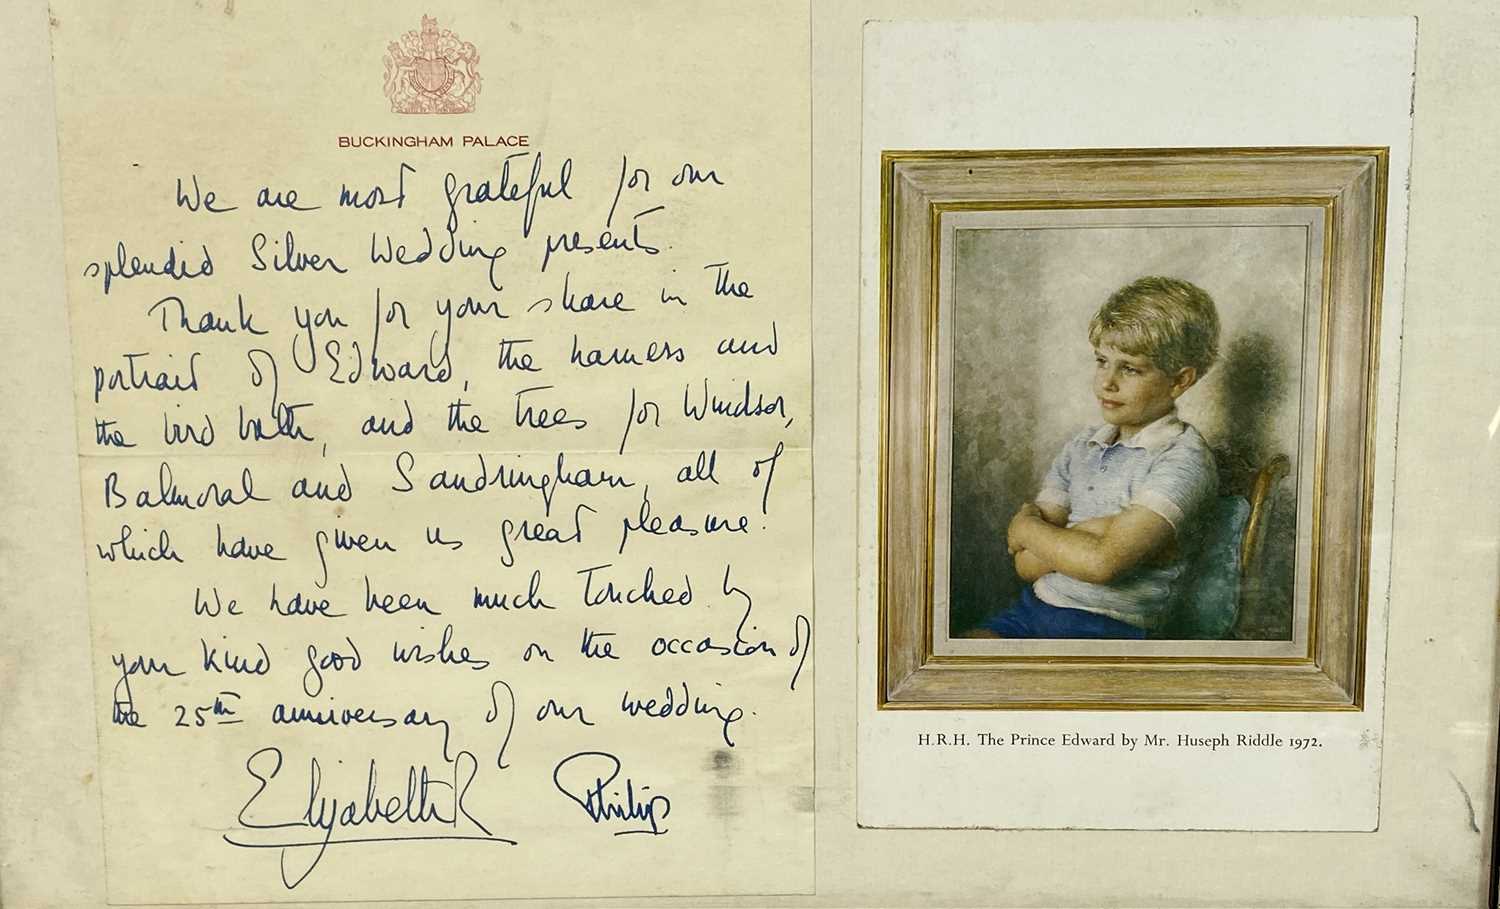 BUCKINGHAM PALACE
We are most grateful for our
splendid Silver Wedding presents.
Thank you for your share in the
portrait of Edward, the harness and
the bird bath, and the trees for Windsor,
Balmoral and Sandringham, all of
which have given us great pleasure.
We have been much touched by
your kind good wishes on the occasion of
the 25th anniversary of our wedding.
Elizabeth R
Philip
H.R.H. The Prince Edward by Mr. Huseph Riddle 1972.